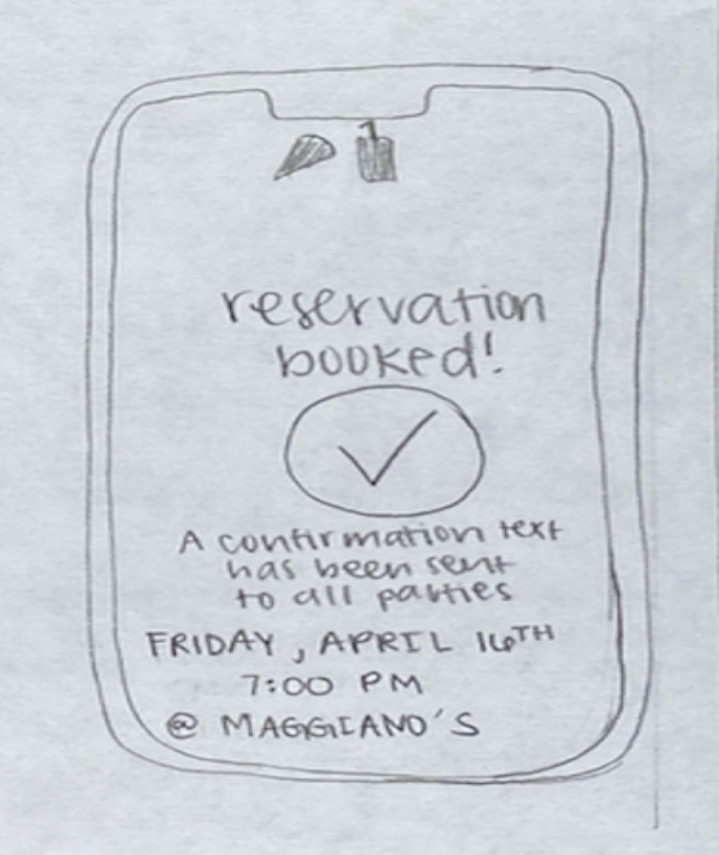 reservation
booked!
A confirmation text
has been sent
to all parties
FRIDAY, APRIL 16TH
7:00 PM
@ MAGGIANO'S